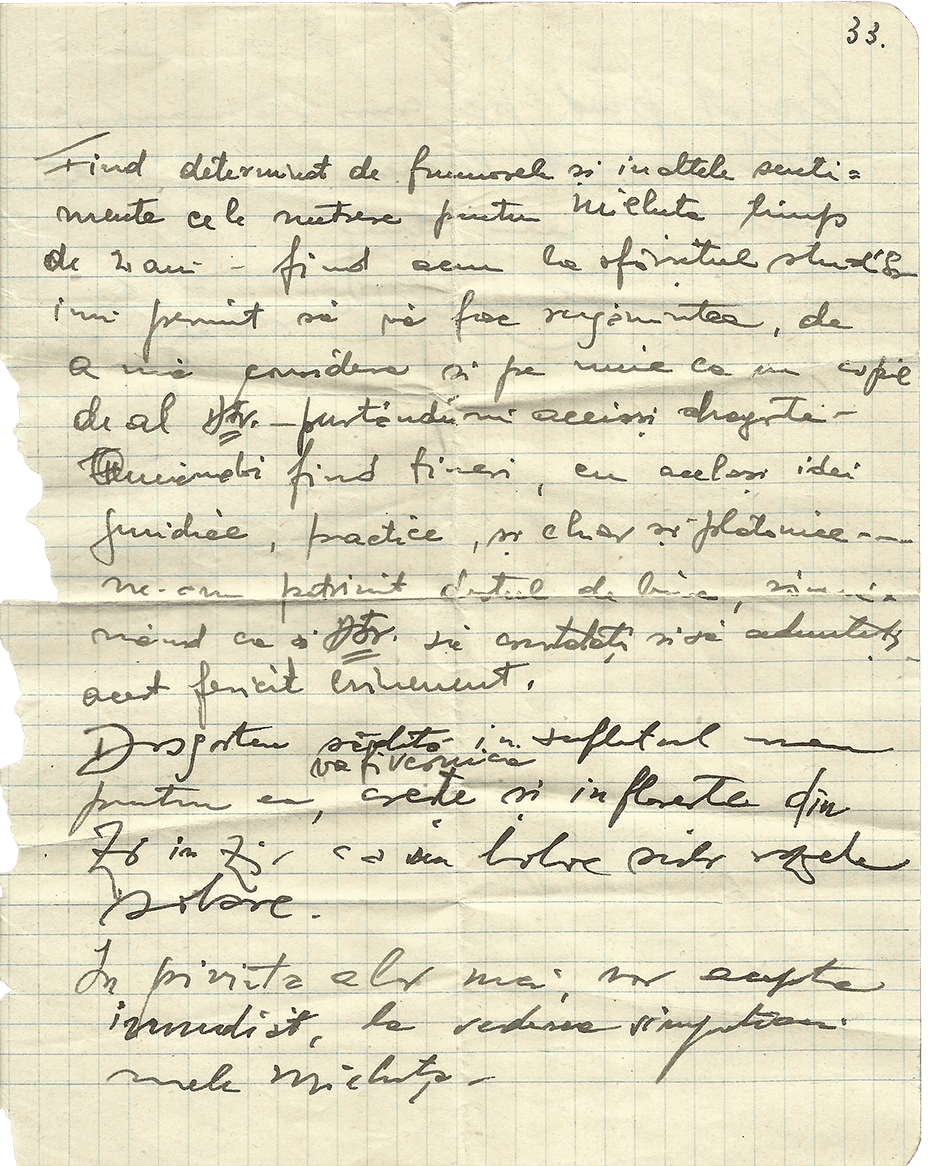 33.
Fiind determinat de frumosele si inaltele senti=
mente ce le nutresc pentru Michuta timp
de 2 ani - fiind acum la sfârsitul
imi permit să vă fac rugămintea, de
a mă considera si pe mine ca un copil
de al Dtr. - purtându-mi aceiasi dragoste -
fiind tineri, cu acelasi idei
juridice, practice, si chiar si platonice ---
ne-am potrivit destul de bine,
nând ca si Dtr. să constatați si să admiteți
acest fericit eveniment.
Dragostea sădită in sufletul meu
va fi vesnica
pentru ea, creste si infloreste din
Zi in Zi, ca un boboc sub razele
solare.
In privinta alor mei, vor accepta
immediat, la vederea simpatiei
mele Michuța -